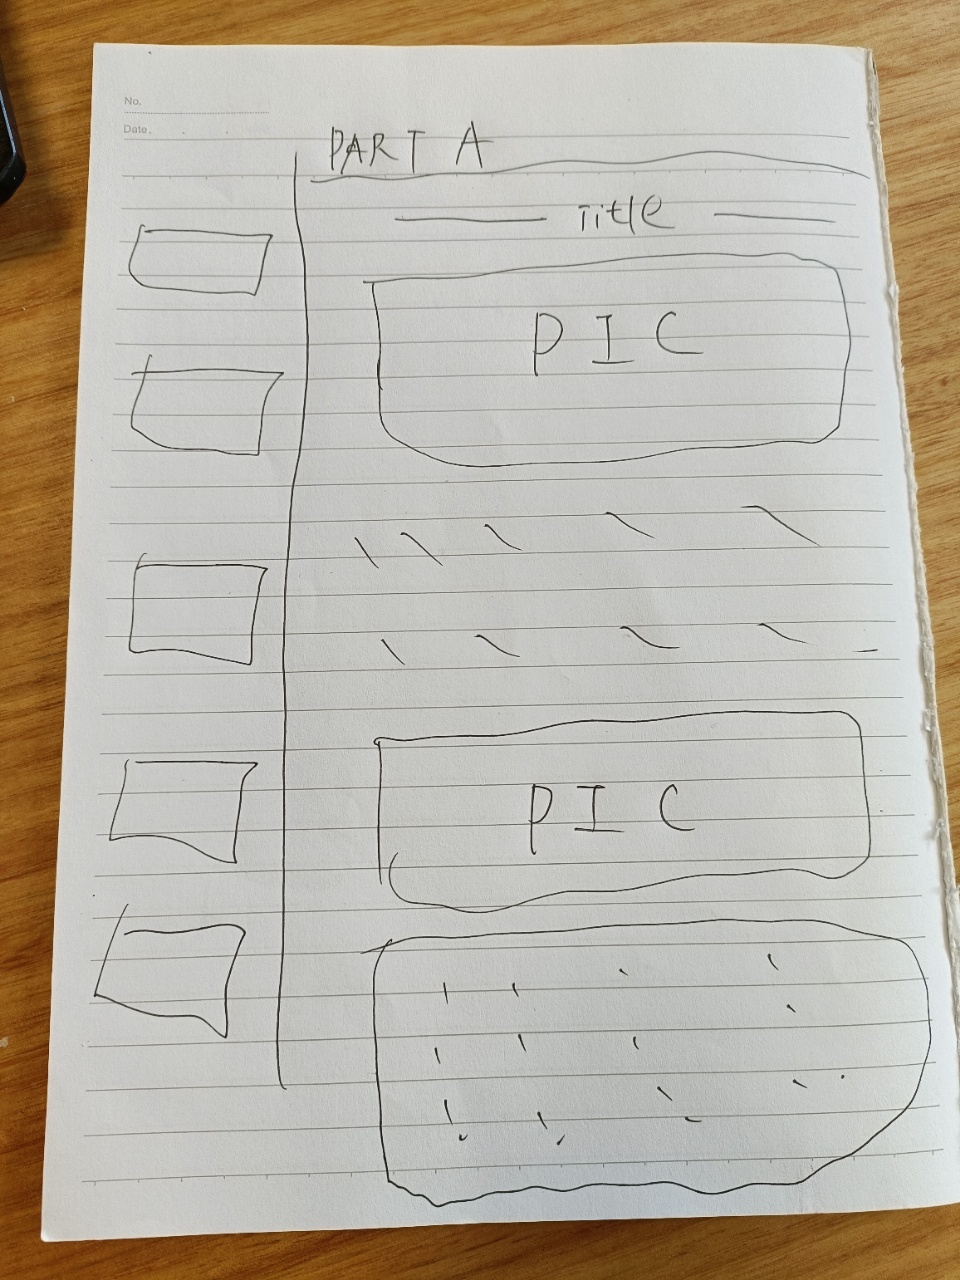 No.
Date.
PART A
Title
PIC
PIC